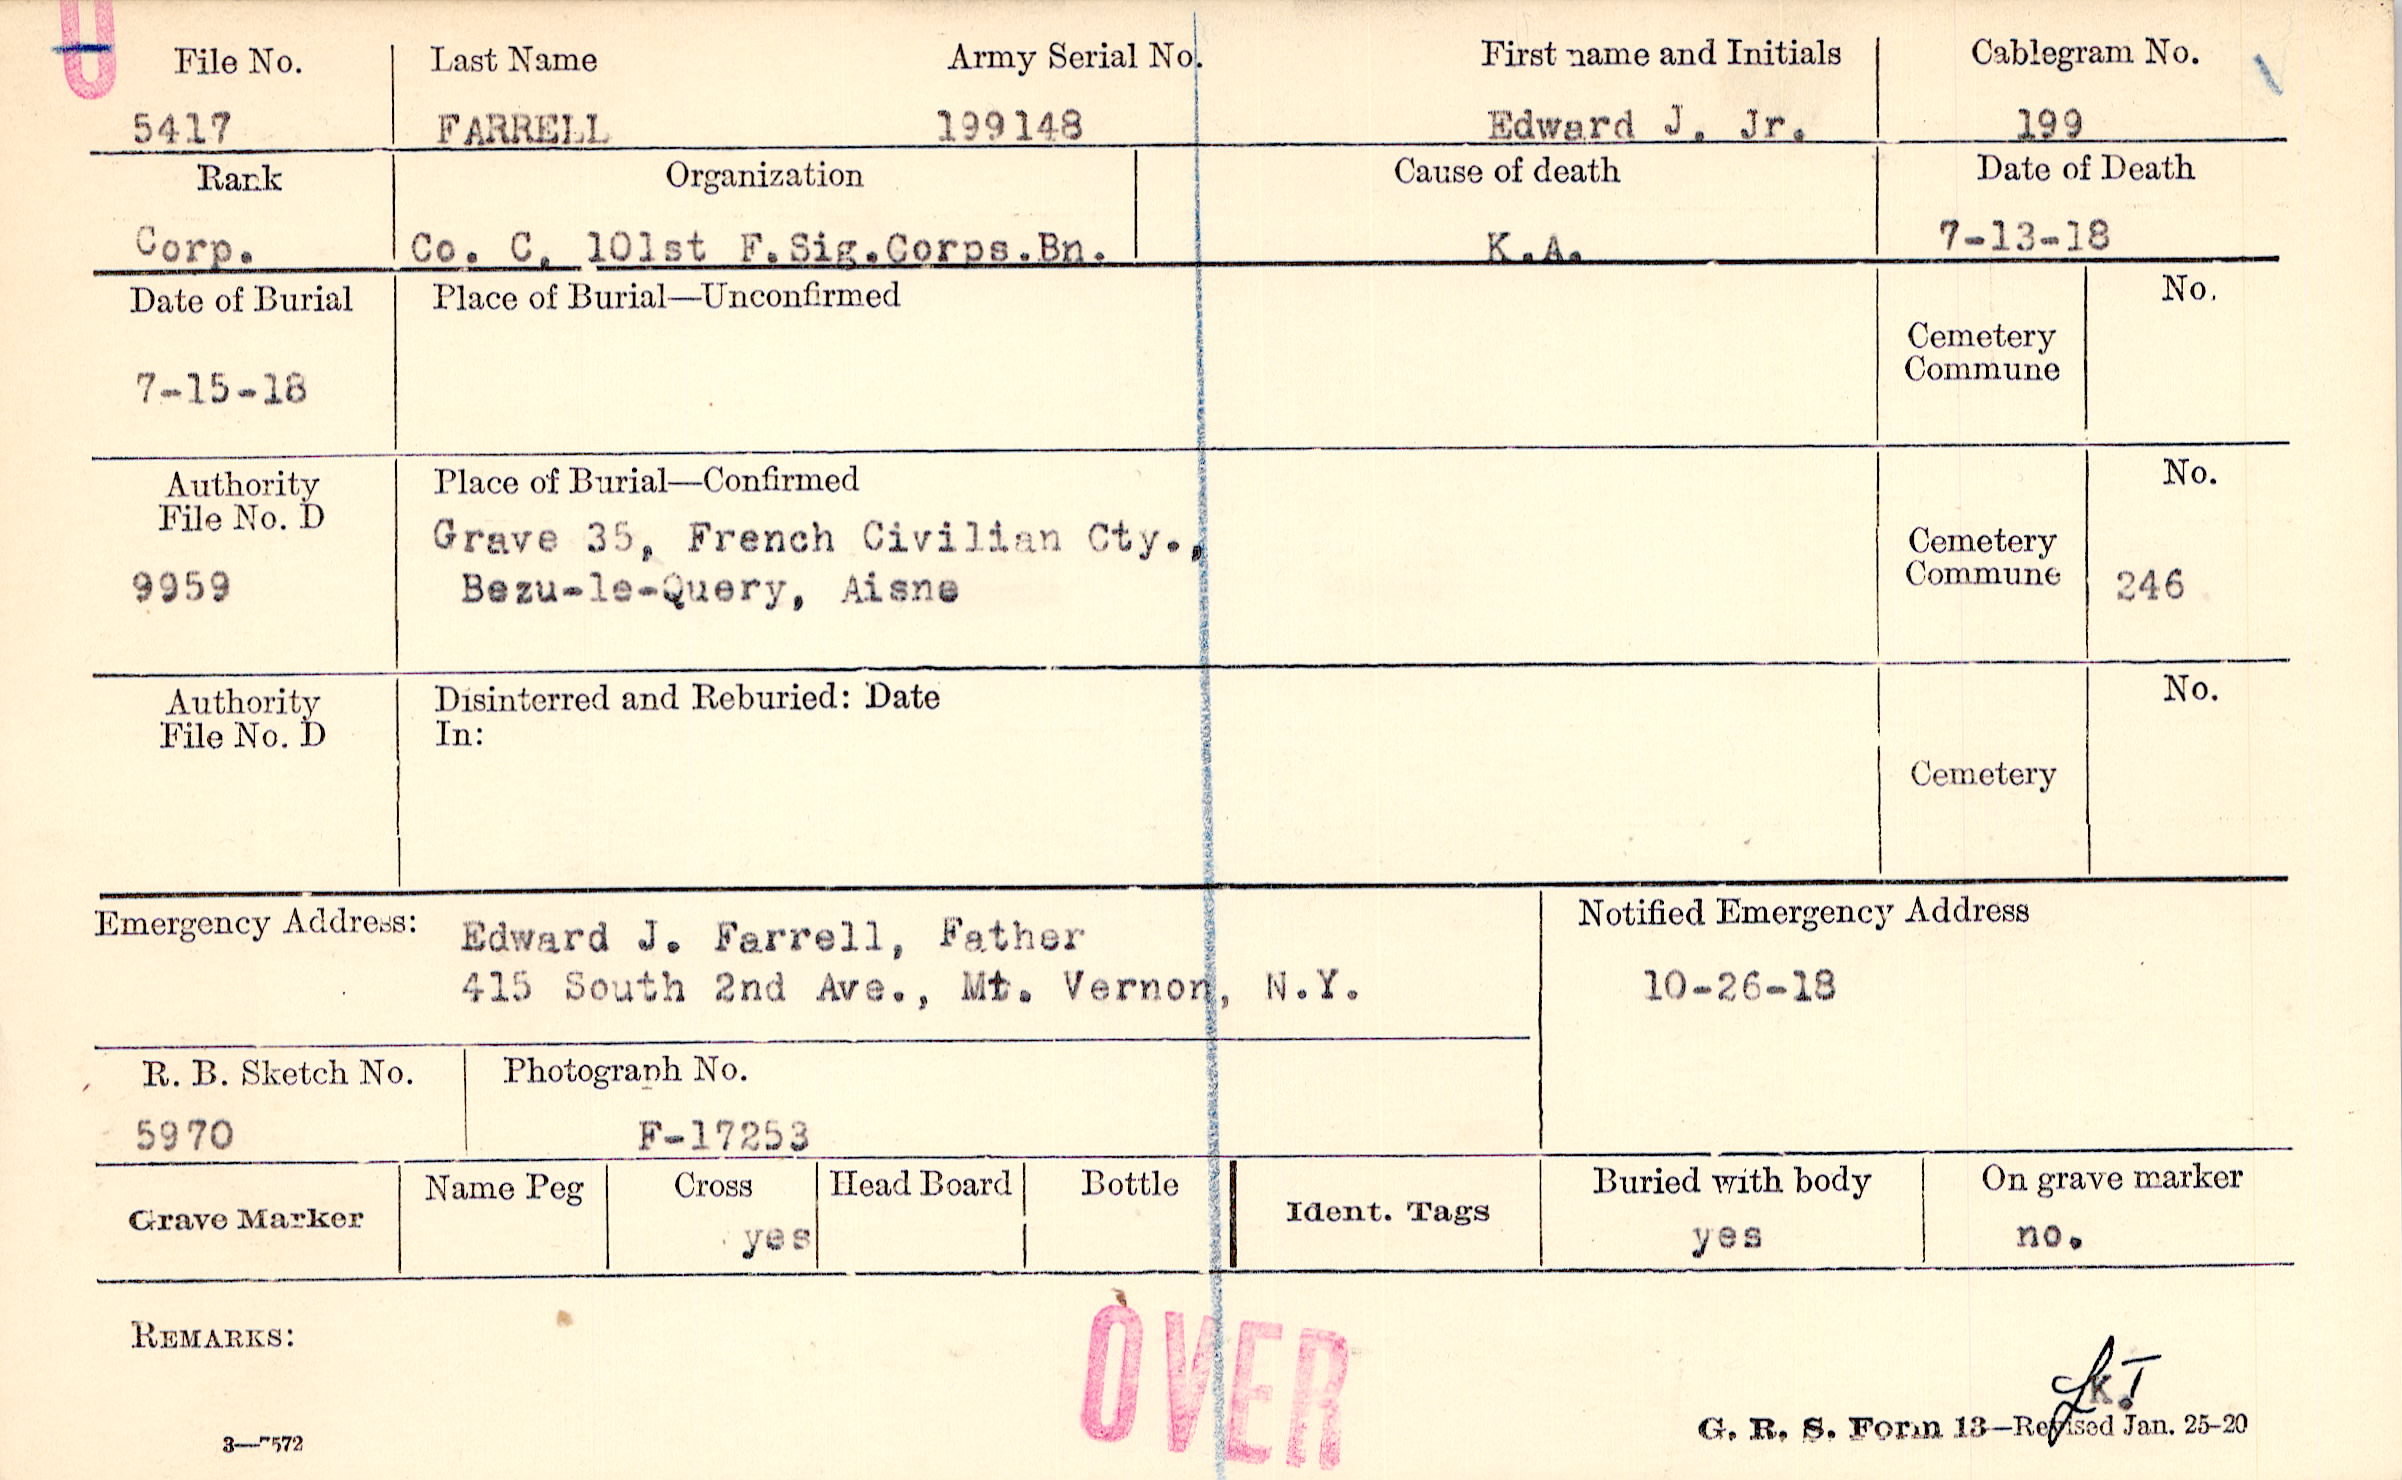 U
File No. Last Name Army Serial No. First name and Initials Cablegram No.
5417 FARRELL 199148 Edward J. Jr. 199
Rank Organization Cause of death Date of Death
Corp. Co. C, 101st F.Sig.Corps.Bn. K.A. 7-13-18
Date of Burial Place of Burial—Unconfirmed No.
Cemetery
Commune
7-15-18
Authority Place of Burial—Confirmed No.
File No. D
Grave 35, French Civilian Cty., Cemetery
9959 Bezu-le-Query, Aisne Commune 246
Authority Disinterred and Reburied: Date No.
File No. D In:
Cemetery
Emergency Address: Edward J. Farrell, Father Notified Emergency Address
415 South 2nd Ave., Mt. Vernon, N.Y. 10-26-18
R. B. Sketch No. Photograph No.
5970 F-17253
Grave Marker Name Peg Cross Head Board Bottle Ident. Tags Buried with body On grave marker
yes yes no.
REMARKS:
OVER
G. R. S. Form 13—Revised Jan. 25-20